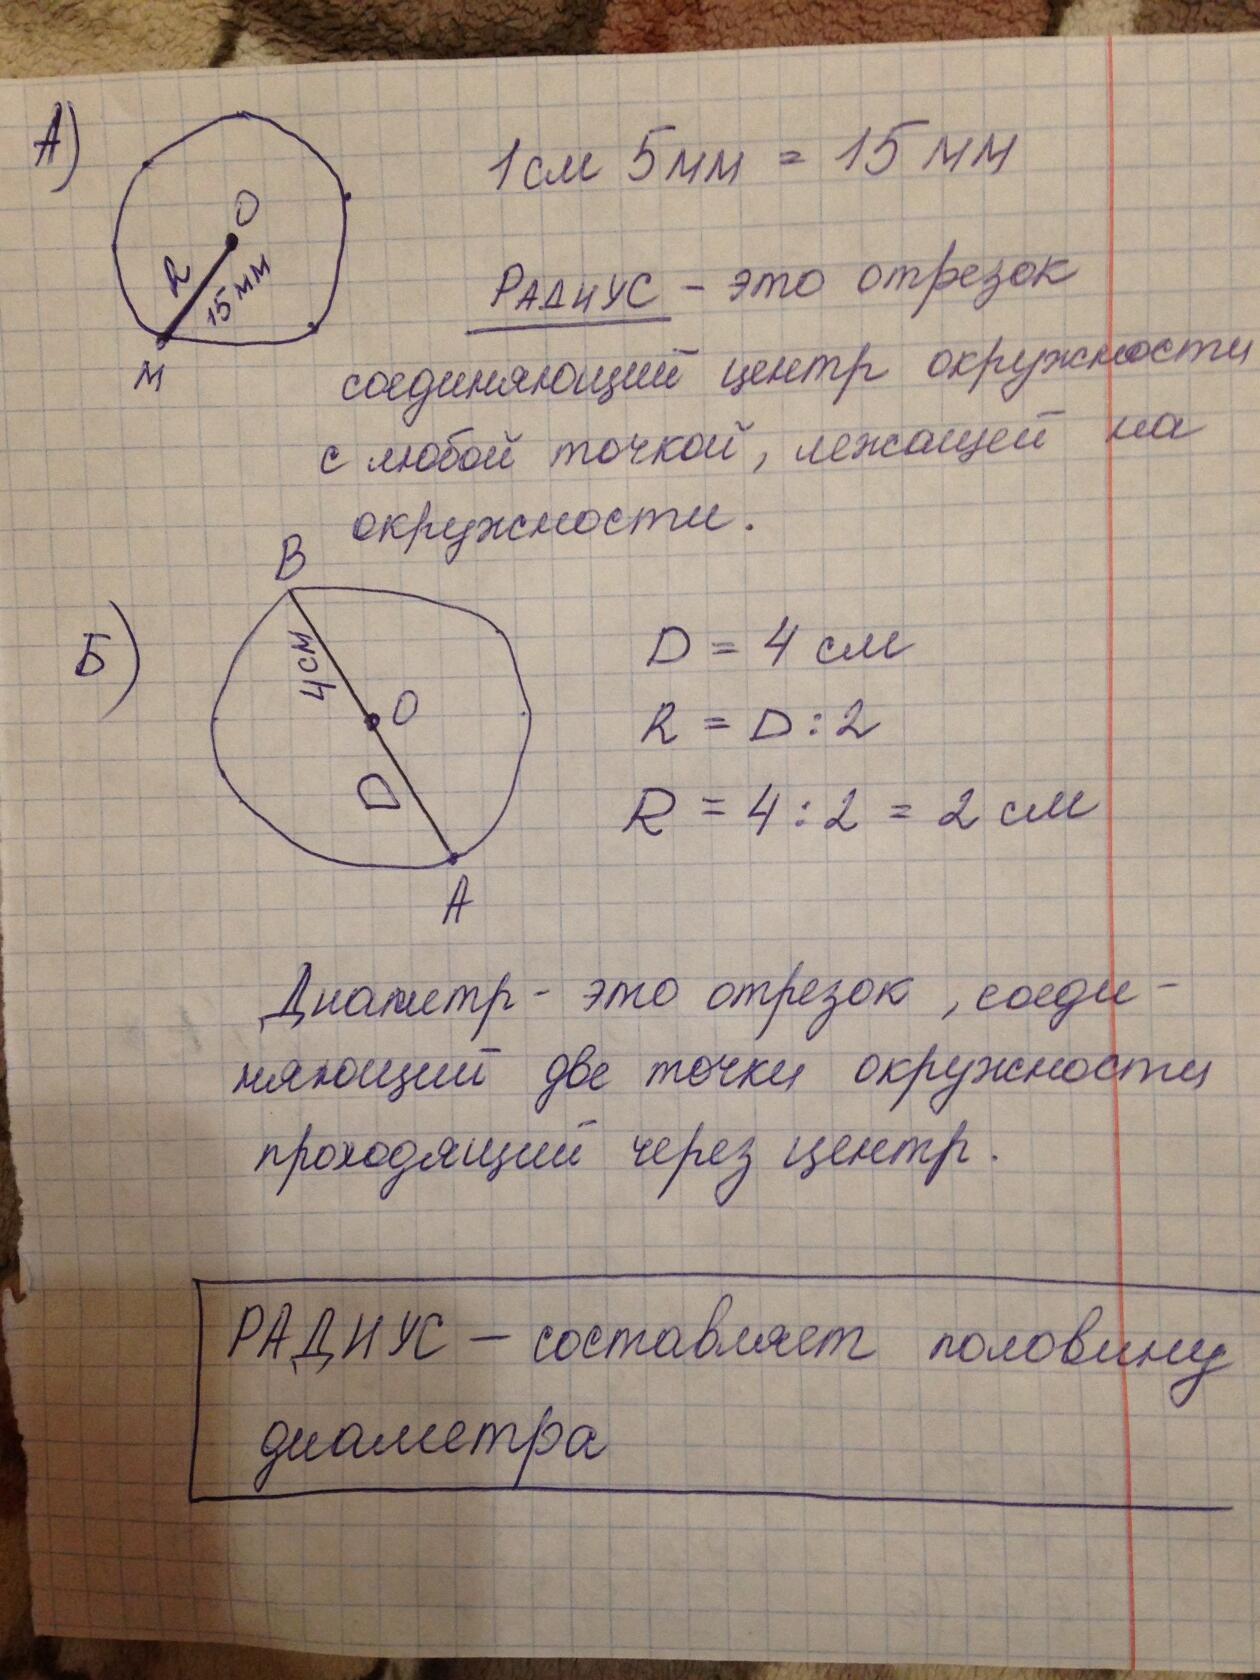 А)
1см 5мм = 15 мм
O
R
15 мм
М
Радиус - это отрезок
соединяющий центр окружности
с любой точкой, лежащей на
окружности.
Б)
В
4см
О
D
А
D = 4 см
R = D : 2
R = 4 : 2 = 2 см
Диаметр - это отрезок, соеди-
няющий две точки окружности
проходящий через центр.
РАДИУС — составляет половину
диаметра